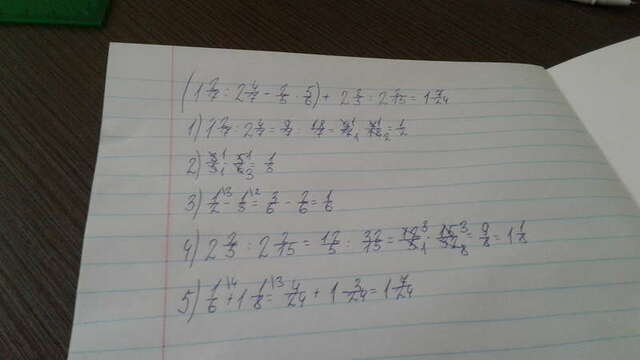 (1 2/7 : 2 4/7 - 2/5 · 5/6) + 2 2/5 : 2 2/15 = 1 7/24
1) 1 2/7 : 2 4/7 = 9/7 : 18/7 = 9/7 · 7/18 = 1/2
2) 2/5 · 5/6 = 1/3
3) 1/2 - 1/3 = 3/6 - 2/6 = 1/6
4) 2 2/5 : 2 2/15 = 12/5 : 32/15 = 12/5 · 15/32 = 9/8 = 1 1/8
5) 1/6 + 1 1/8 = 4/24 + 1 3/24 = 1 7/24